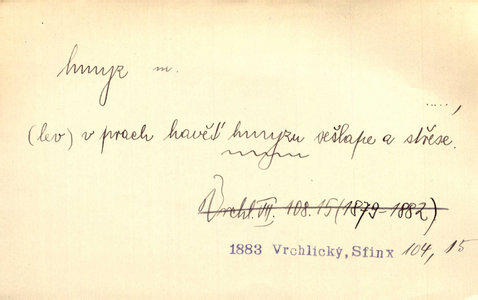 hmyz m.
(lev) v prach havěť hmyzu vešlape a střese.
Vrchl. VII. 108.15 (1879-1882)
1883 Vrchlický, Sfinx 104, 15